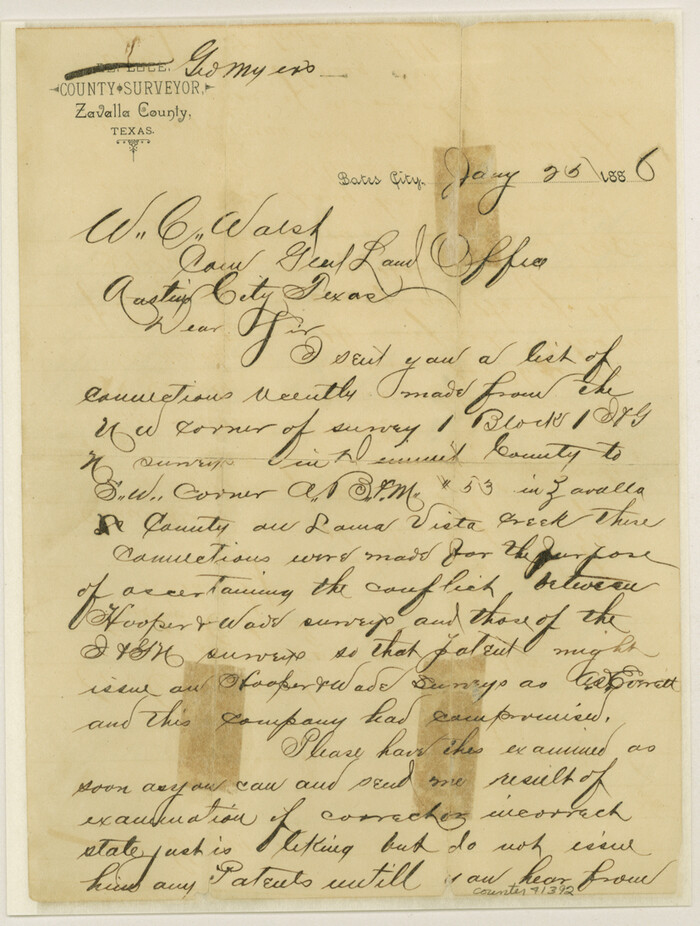 Geo Myers
COUNTY SURVEYOR,
Zavalla County,
TEXAS.
Bates City, Jany 25 1886
W. C. Walsh
Com Genl Land Office
Austin City Texas
Dear Sir
I sent you a list of
connections recently made from the
N W corner of survey 1 Block 1 I & G
N surveys in Dimmit County to
S. W. corner A. B. & M. # 53 in Zavalla
County on Loma Vista creek these
connections were made for the purpose
of ascertaining the conflict between
Hooper & Wade surveys and those of the
I & GN surveys so that patent might
issue on Hooper & Wade surveys as Everett
and this company had compromised.
Please have this examined as
soon as you can and send me result of
examination if correct or incorrect
state just is liking but do not issue
him any Patents untill you hear from
counter 41392